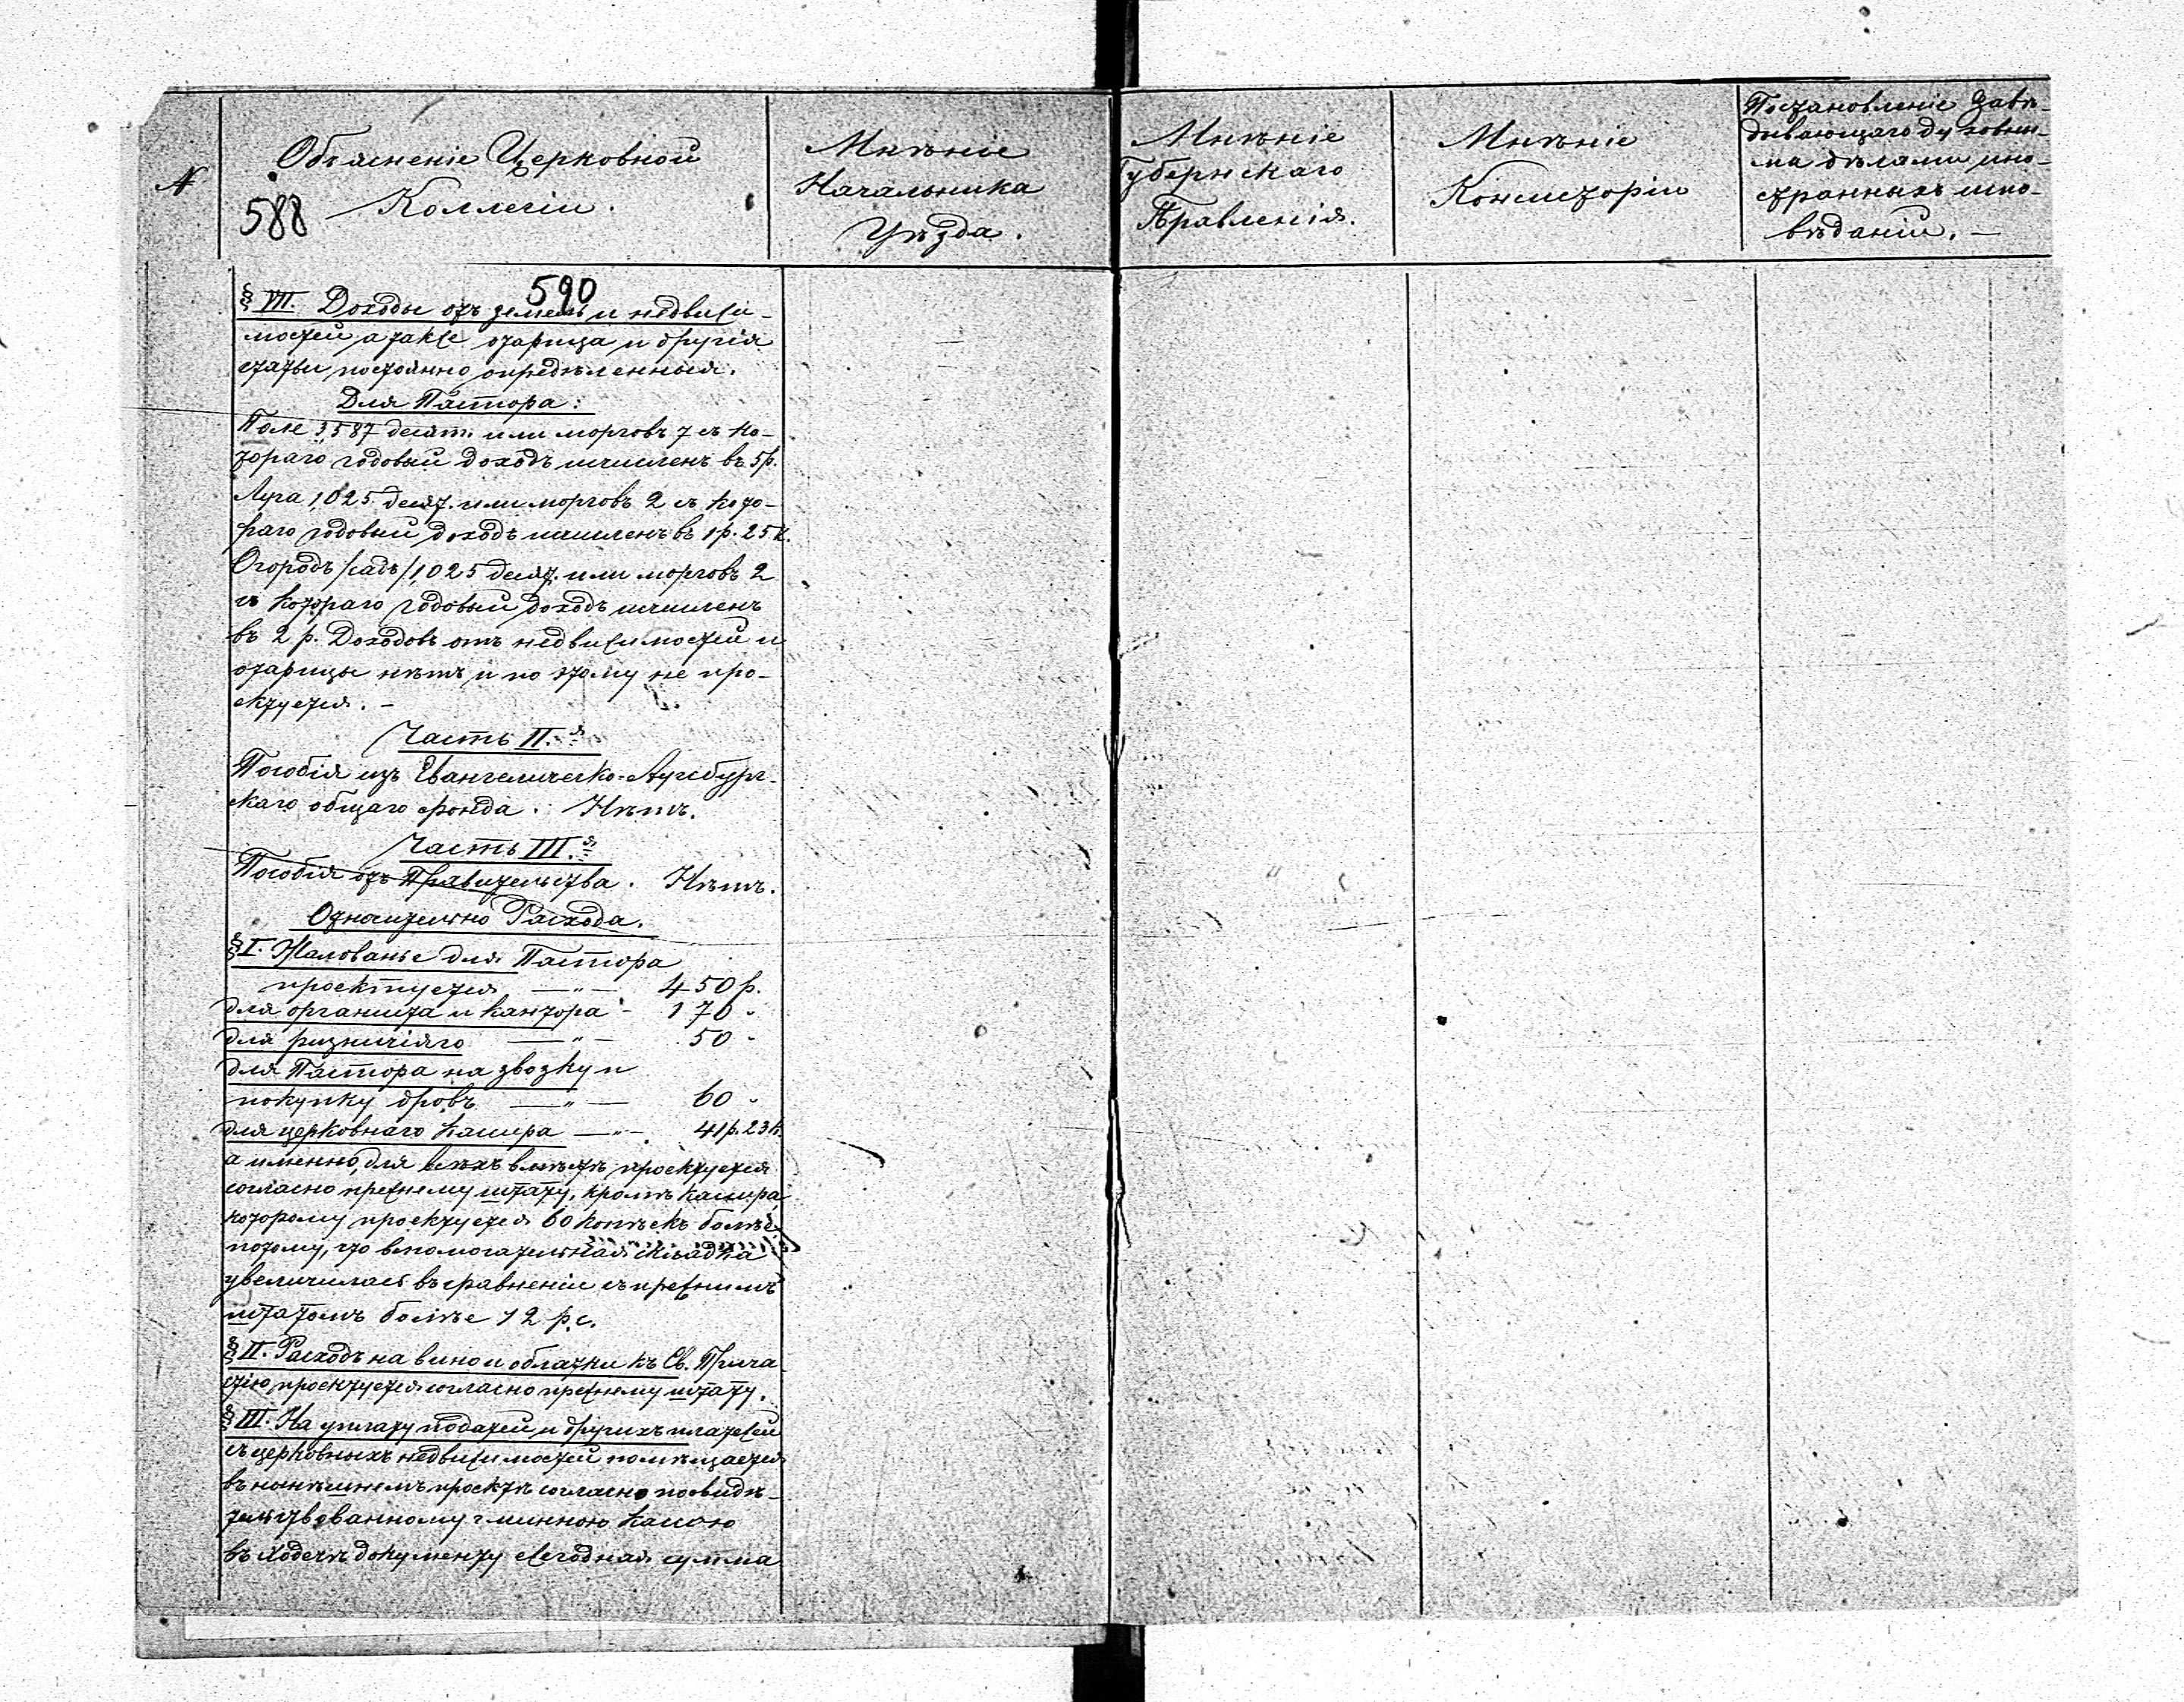 №
Объясненіе Церковной
Коллегіи.
588
Мнѣніе
Начальника
Уѣзда.
Мнѣніе
Губернскаго
Правленія.
Мнѣніе
Консисторіи
Постановленіе Завѣ-
дывающаго духовны-
ма дѣлами ино-
странныхъ испо-
вѣданій. —
590
§ VII. Доходы отъ земель и недвижи-
мостей а также отарица и другія
статьи постоянно опредѣленныя.
Для Пастора:
Поле 3,587 десят. или морговъ 7 съ ко-
тораго годовый доходъ исчисленъ въ 5 р.
Луга 1,025 десят. или морговъ 2 съ кото-
раго годовый доходъ исчисленъ въ 1 р. 25 к.
Огородъ /садъ/ 1,025 десят. или морговъ 2
съ котораго годовый доходъ исчисленъ
въ 2 р. Доходовъ отъ недвижимостей и
отарицы нѣтъ, и по этому не про-
ектуется. —
Часть II.я
Пособія изъ Евангелическо-Аугсбург-
скаго общаго фонда. Нѣтъ.
Часть III.я
Пособія отъ Правительства. Нѣтъ.
Относительно Расхода.
§ I. Жалованье для Пастора
проектуется — " — 450 р.
для органиста и кантора - 170 "
для ризничіяго — " — 50 "
для Пастора на звозку и
покупку дровъ — " — 60 "
для церковнаго кассира — " — 41 р. 23 к.
а именно, для всѣхъ вмѣстѣ проектуется
согласно прежнему штату, кромѣ кассира,
которому проектуется 60 копѣекъ болѣе
потому, что вспомогательная складка
увеличилась въ сравненіи съ прежнимъ
штатомъ болѣе 12 р. с.
§ II. Расходъ на вино и облатки къ Св. Прича-
стію проектуется согласно прежнему штату.
§ III. На уплату податей и другихъ платежей
съ церковныхъ недвижимостей помѣщается
въ нынѣшнемъ проектѣ согласно посвидѣ-
тельствованному гминною кассою
въ ходечѣ документу ежегодная сумма